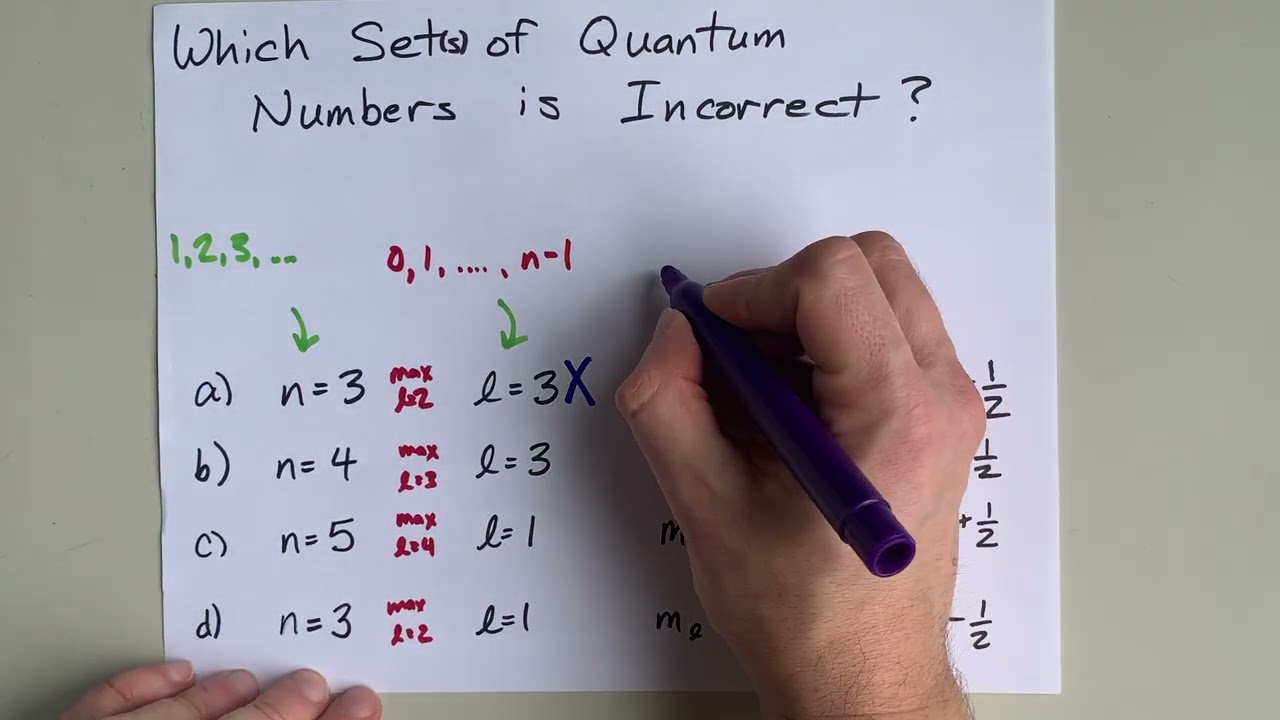 Which Set(s) of Quantum
Numbers is Incorrect?
1,2,3,... 0,1,...., n-1
a) n=3 max l=2 l=3 X 1/2
b) n=4 max l=3 l=3 1/2
c) n=5 max l=4 l=1 m +1/2
d) n=3 max l=2 l=1 mℓ -1/2